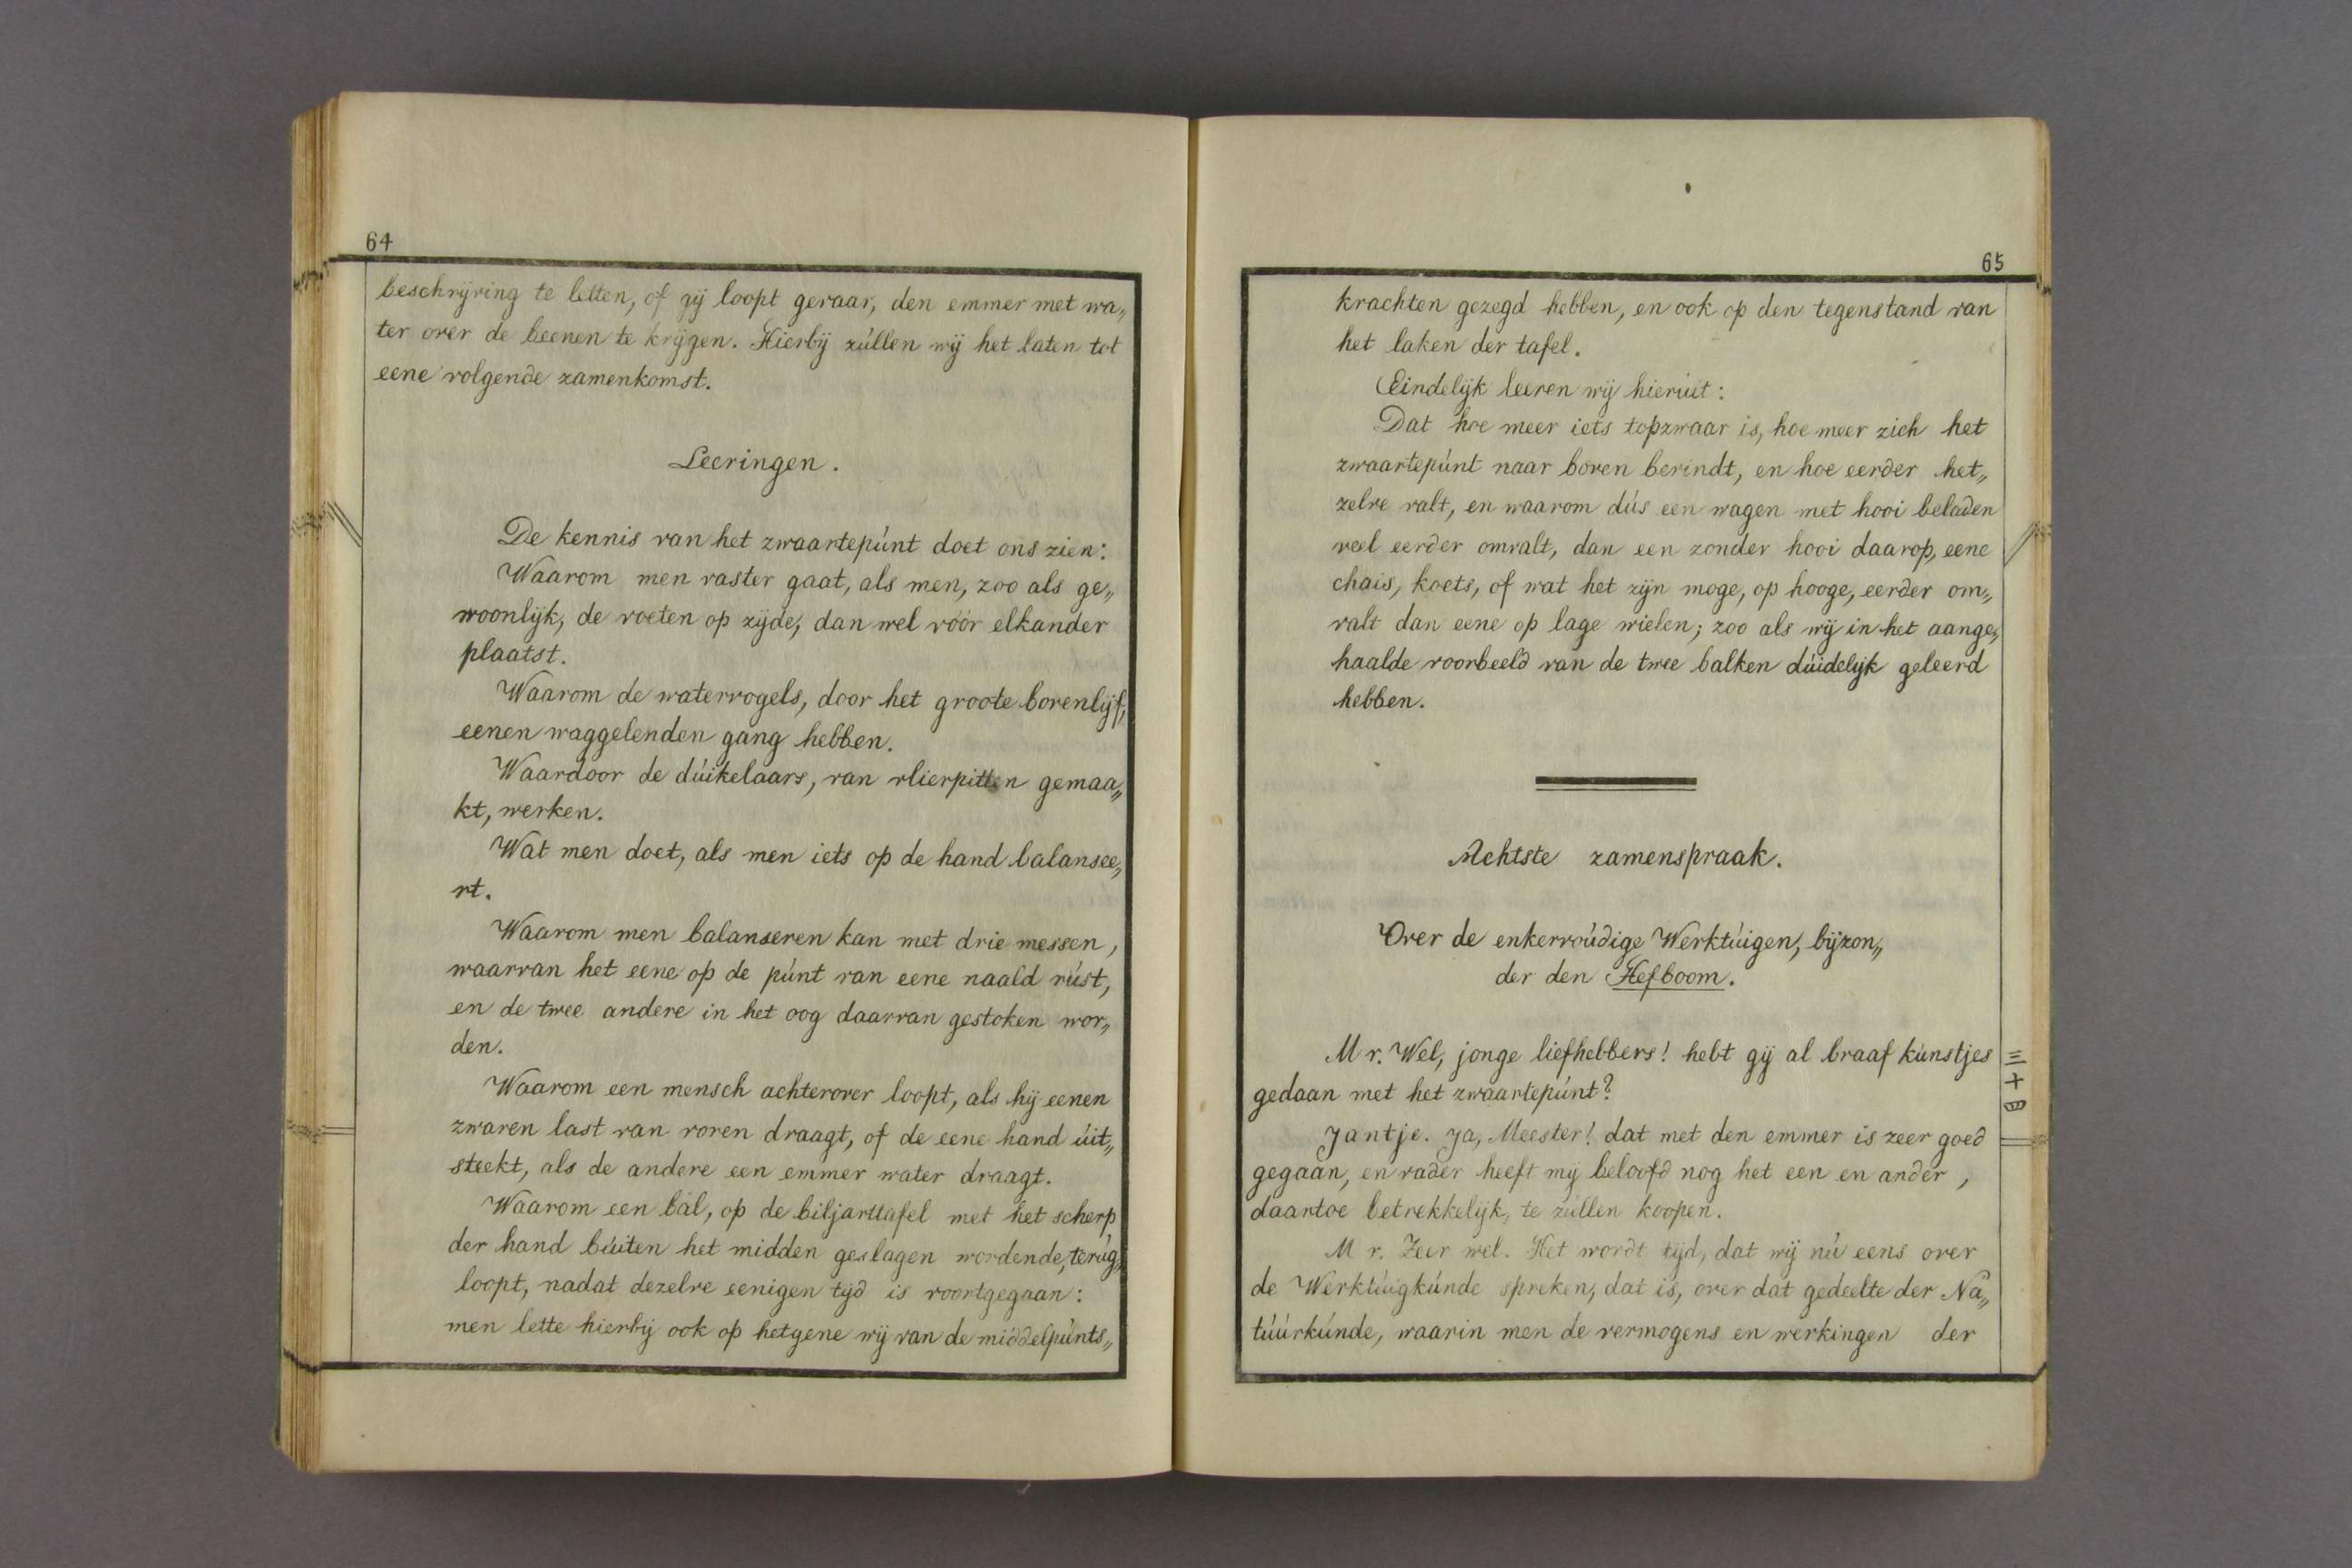 64
beschrijving te letten, of gij loopt gevaar, den emmer met wa„
ter over de beenen te krijgen. Hierbij zúllen wij het laten tot
eene volgende zamenkomst.
Leeringen.
De kennis van het zwaartepúnt doet ons zien:
Waarom men vaster gaat, als men, zoo als ge„
woonlijk, de voeten op zijde, dan wel vóór elkander
plaatst.
Waarom de watervogels, door het groote bovenlijf,
eenen waggelenden gang hebben.
Waardoor de dúikelaars, van vlierpitten gemaa„
kt, werken.
Wat men doet, als men iets op de hand balansee„
rt.
Waarom men balanseren kan met drie messen,
waarvan het eene op de púnt van eene naald rúst,
en de twee andere in het oog daarvan gestoken wor„
den.
Waarom een mensch achterover loopt, als hij eenen
zwaren last van voren draagt, of de eene hand úit„
steekt, als de andere een emmer water draagt.
Waarom een bal, op de biljarttafel met het scherp
der hand búiten het midden geslagen wordende, terúg„
loopt, nadat dezelve eenigen tijd is voortgegaan:
men lette hierbij ook op hetgene wij van de middelpúnts„
65
krachten gezegd hebben, en ook op den tegenstand van
het laken der tafel.
Eindelijk leeren wij hierúit:
Dat hoe meer iets topzwaar is, hoe meer zich het
zwaartepúnt naar boven bevindt, en hoe eerder het„
zelve valt, en waarom dús een wagen met hooi beladen
veel eerder omvalt, dan een zonder hooi daarop, eene
chais, koets, of wat het zijn moge, op hooge, eerder om„
valt dan eene op lage wielen; zoo als wij in het aange„
haalde voorbeeld van de twee balken dúidelijk geleerd
hebben.
Achtste zamenspraak.
Over de enkervoúdige Werktúigen, bijzon„
der den Hefboom.
Mr. Wel, jonge liefhebbers! hebt gij al braaf kúnstjes
gedaan met het zwaartepúnt?
Jantje. Ja, Meester! dat met den emmer is zeer goed
gegaan, en vader heeft mij beloofd nog het een en ander,
daartoe betrekkelijk, te zúllen koopen.
Mr. Zeer wel. Het wordt tijd, dat wij nú eens over
de Werktúigkúnde spreken, dat is, over dat gedeelte der Na„
túúrkúnde, waarin men de vermogens en werkingen der
三十四